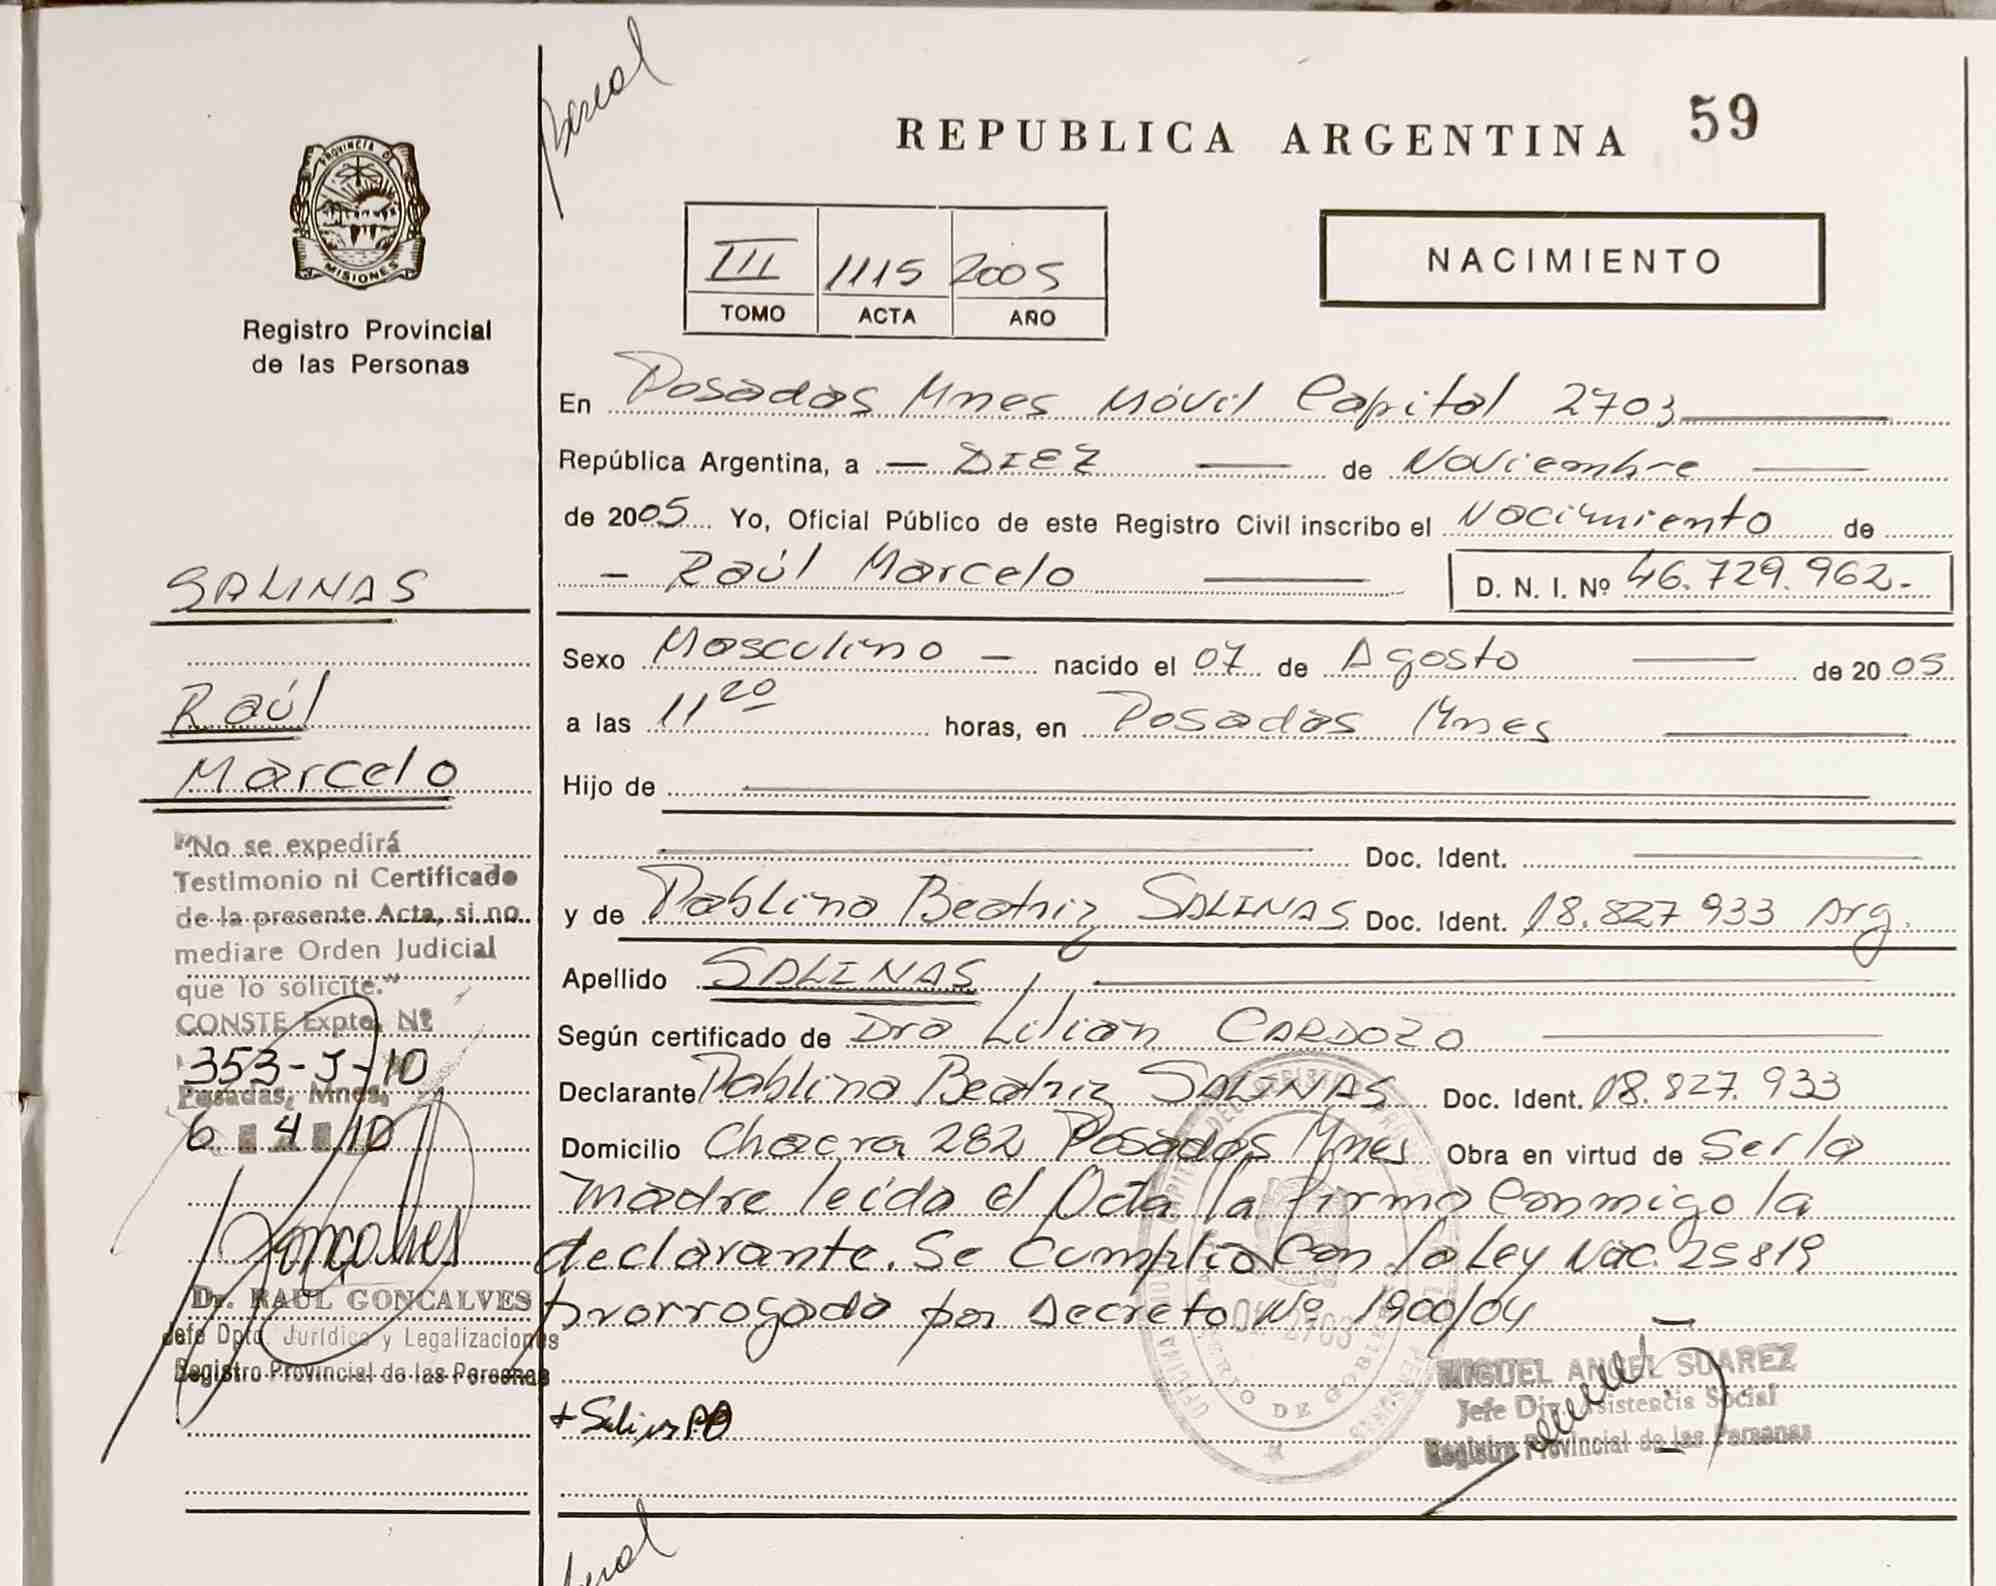 REPUBLICA ARGENTINA 59
PROVINCIA DE
MISIONES
Registro Provincial
de las Personas
III 1115 2005
TOMO ACTA AÑO
NACIMIENTO
En Posadas Mnes Móvil Capital 2703
República Argentina, a DIEZ de Noviembre
de 2005 Yo, Oficial Público de este Registro Civil inscribo el Nacimiento de
Raúl Marcelo D. N. I. Nº 46.729.962.-
Sexo Masculino - nacido el 07 de Agosto de 2005
a las 11 20 horas, en Posadas Mnes
Hijo de
Doc. Ident.
y de Pablina Beatriz SALINAS Doc. Ident. 18.827.933 Arg.
Apellido SALINAS
Según certificado de Dra Lilian CARDOZO
Declarante Pablina Beatriz SALINAS Doc. Ident. 18.827.933
Domicilio Chacra 282 Posadas Mnes Obra en virtud de Ser la
madre leida el Acta la firma Conmigo la
declarante. Se Cumplio Con la Ley Nac. 25819
prorrogada por Decreto Nº 1900/04
MIGUEL ANGEL SUAREZ
Jefe Div. Asistencia Social
Registro Provincial de las Personas
SALINAS
Raúl
Marcelo
"No se expedirá
Testimonio ni Certificado
de la presente Acta, si no
mediare Orden Judicial
que lo solicite."
CONSTE Expte. Nº
353-J-10
Posadas, Mnes,
6 4 10
Goncalves
Dr. RAUL GONCALVES
Jefe Dpto. Jurídico y Legalizaciones
Registro Provincial de las Personas